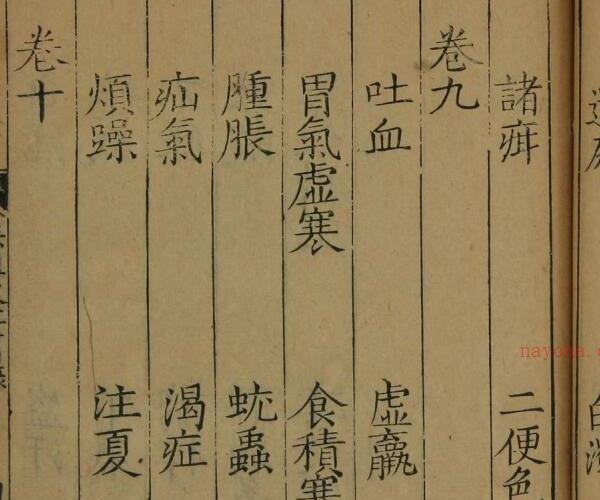 諸疳 二便色
卷九
吐血 虛羸
胃氣虛寒 食積寒
腫脹 蚘蟲
疝氣 渴症
煩躁 注夏
卷十
nayona.c